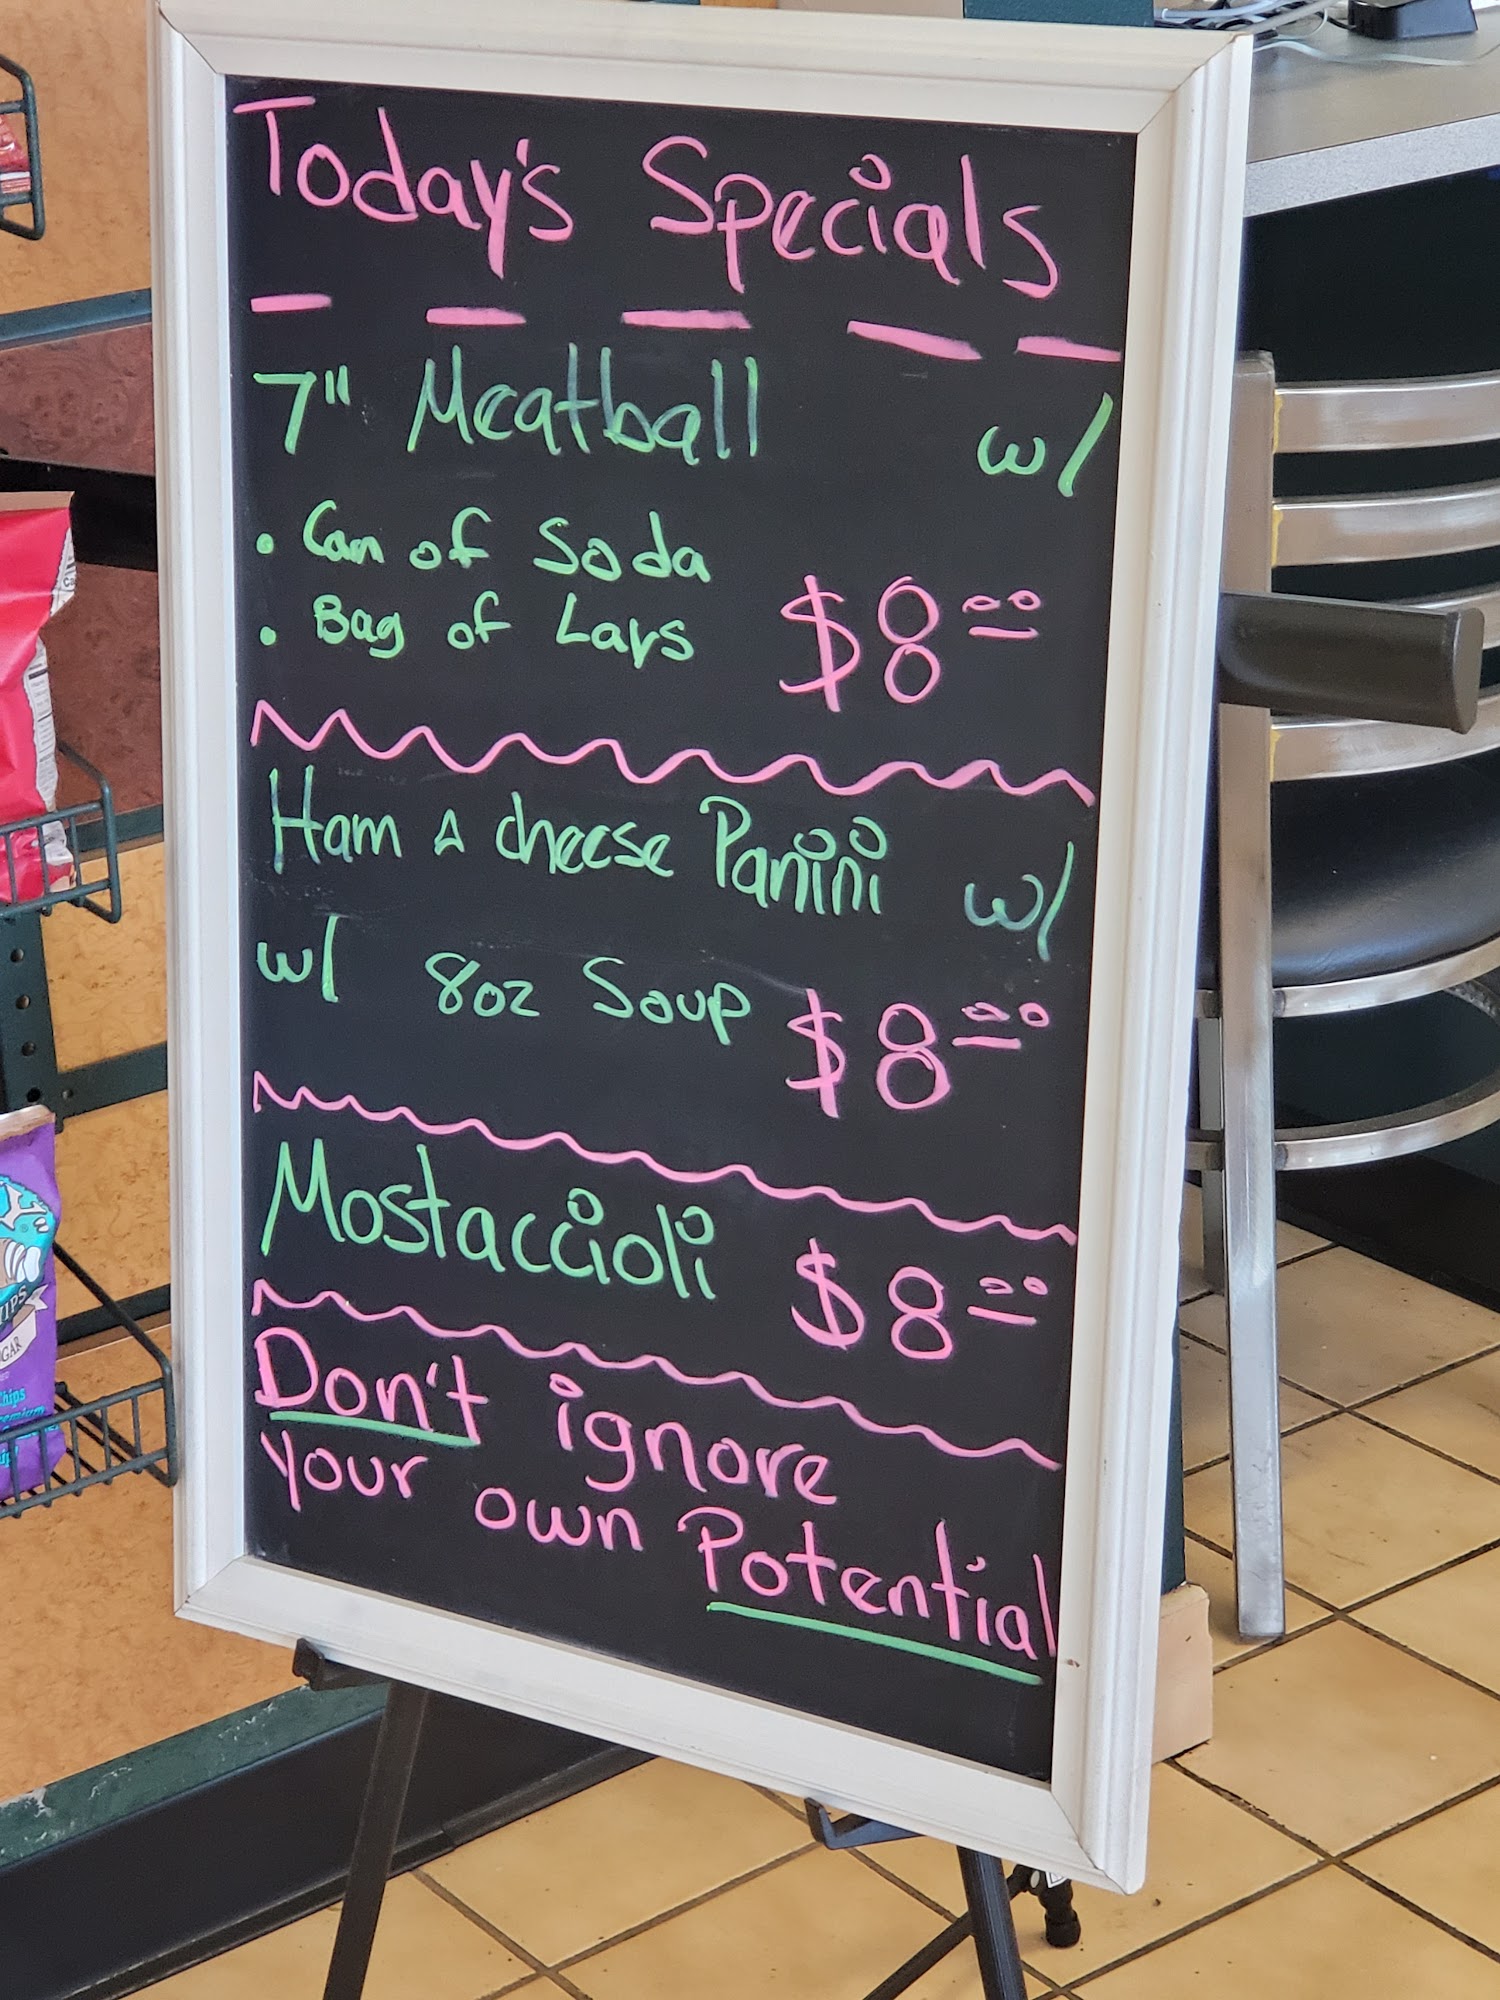 Today's Specials
7" Meatball w/
• Can of Soda
• Bag of Lays
$8.00
Ham & cheese Panini w/
w/ 8oz Soup $8.00
Mostaccioli $8.00
Don't ignore
your own Potential
CHIPS